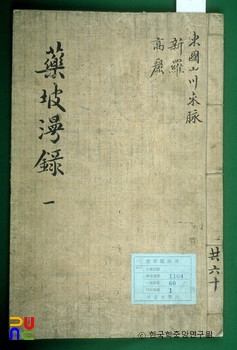 東國山川來脉
新羅
高麗
藥坡漫錄
一
共六十
1164
60
1
한국학중앙연구원